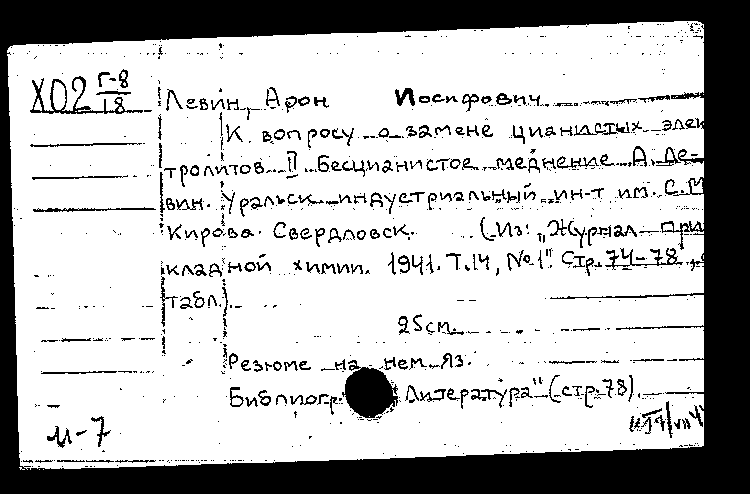 Х02 Г-8
18
Левин, Арон Иосифович
К вопросу о замене цианистых элек
тролитов II Бесцианистое меднение А. Ле-
вин. Уральск. индустриальный ин-т им. С.М
Кирова. Свердловск. (Из: „Журнал при
кладной химии. 1941. Т.14, №1". Стр. 74-78,
табл.).
25см.
Резюме на нем. яз.
Библиогр. Литература" (стр. 78).
И-7